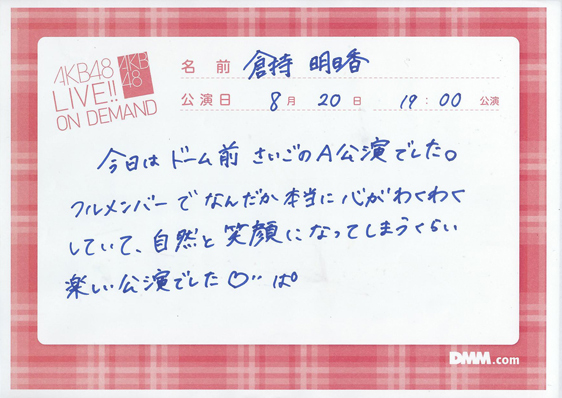 AKB48
LIVE!!
ON DEMAND
AKB
48
名 前 倉持 明日香
公演日 8 月 20 日 19:00 公演
今日は ドーム前 さいごのA公演でした。
フルメンバーで なんだか 本当に 心がわくわく
していて、自然と 笑顔に なってしまうくらい
楽しい公演でした♡" ぱ。
DMM.com